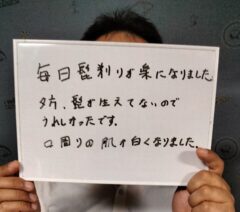 毎日髭剃りが楽になりました。
夕方、髭が生えてないので
うれしかったです。
口周りの肌が白くなりました。